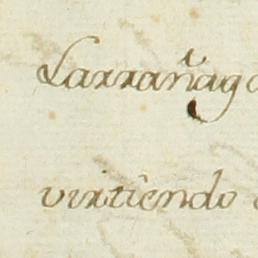 Larrañaga
virtiendo